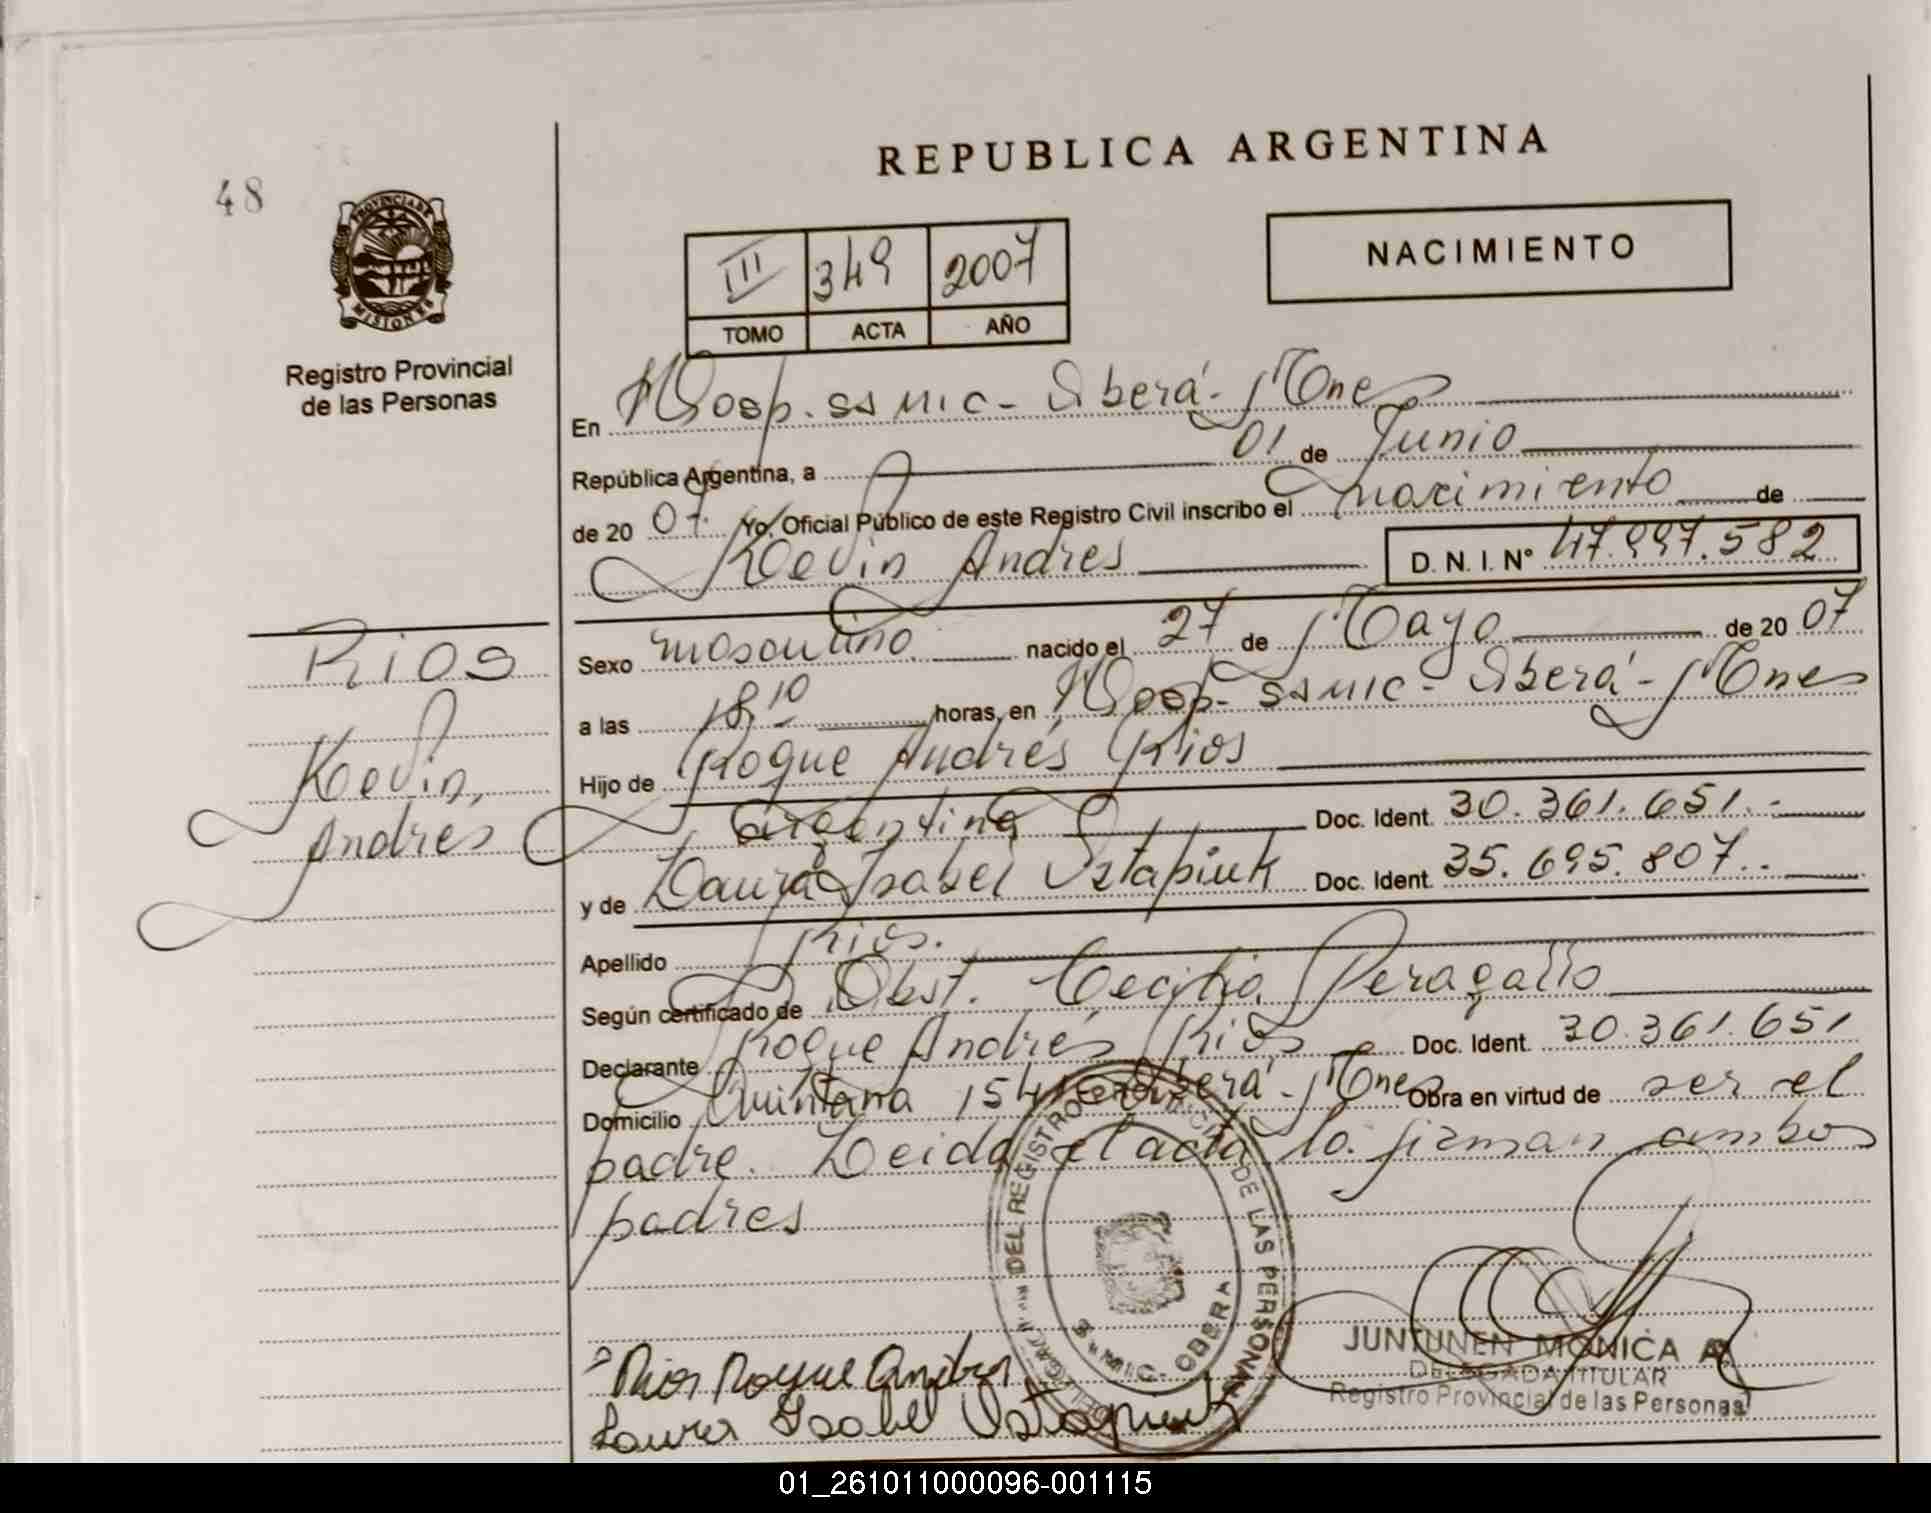 REPUBLICA ARGENTINA
48
PROVINCIA DE
MISIONES
Registro Provincial
de las Personas
III 349 2007
TOMO ACTA AÑO
NACIMIENTO
En Hosp. SSMIC - Oberá - Mnes
República Argentina, a 01 de Junio
de 20 07 Yo, Oficial Público de este Registro Civil inscribo el nacimiento de
Kevin Andres D. N. I. N° 47.997.582
Rios
Kevin,
Andrés
Sexo masculino nacido el 27 de Mayo de 20 07
a las 18 10 horas, en Hosp. SSMIC - Oberá - Mnes
Hijo de Roque Andrés Rios
argentina Doc. Ident. 30.361.651.-
y de Laura Isabel Doc. Ident. 35.695.807.-
Apellido Rios.
Según certificado de Obst. Cecilia Peragallo
Declarante Roque Andrés Rios Doc. Ident. 30.361.651
Domicilio Quintana Oberá - Mnes Obra en virtud de ser el
padre. Leida el acta la firman ambos
padres
DEL REGISTRO PROVINCIAL DE LAS PERSONAS
OBERA
Rios Roque
Laura Isabel
JUNTUNEN MONICA A.
DELEGADA TITULAR
Registro Provincial de las Personas
01_261011000096-001115